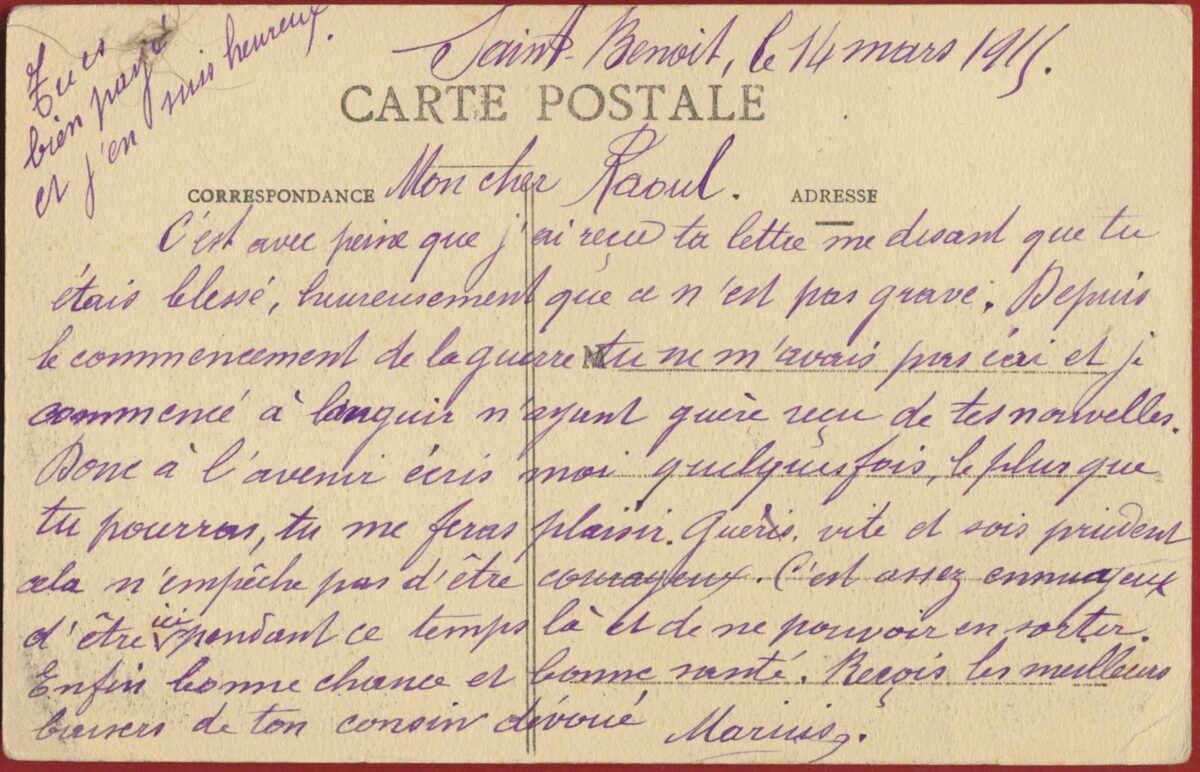 Tu es
bien payé
et j'en suis heureux.
Saint-Benoit, le 14 mars 1915.
CARTE POSTALE
CORRESPONDANCE
Mon cher Raoul.
ADRESSE
C'est avec peine que j'ai reçu ta lettre me disant que tu
étais blessé, heureusement que ce n'est pas grave. Depuis
le commencement de la guerre tu ne m'avais pas écri et je
commencé à languir n'ayant guère reçu de tes nouvelles.
Donc à l'avenir écris moi quelques fois, le plus que
tu pourras, tu me feras plaisir. Guéris vite et sois prudent
cela n'empêche pas d'être courageux. C'est assez ennuayeux
d'être ici pendant ce temps là et de ne pouvoir en sorter.
Enfin bonne chance et bonne santé. Reçois les meilleurs
baisers de ton cousin dévoué Marius.